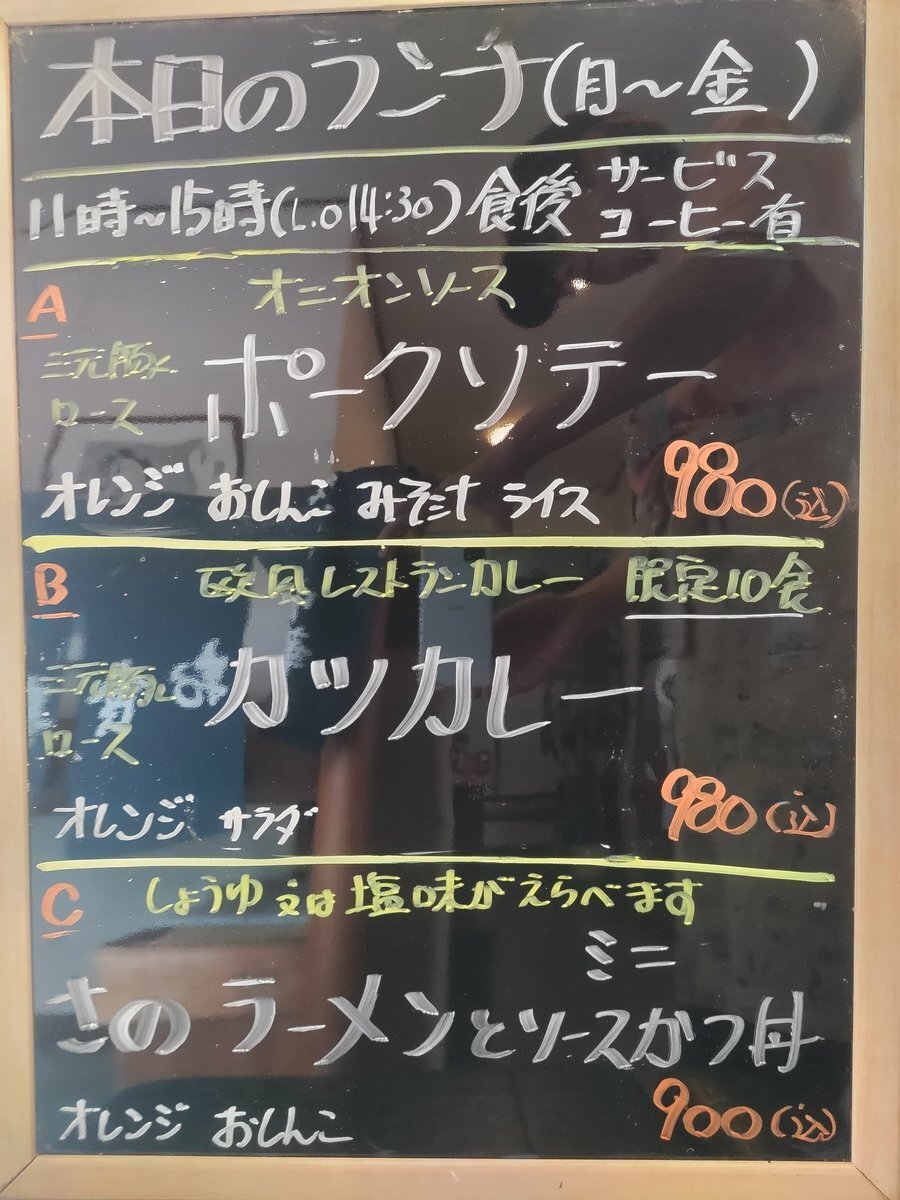 本日のランチ(月～金)
11時～15時(L.O14:30)食後 サービス
コーヒー有
A オニオンソース
三元豚
ロース
ポークソテー
オレンジ おしんこ みそ汁 ライス 980(込)
B 欧風レストランカレー 限定10食
三元豚
ロース
カツカレー
オレンジ サラダ 980(込)
C しょうゆ又は塩味がえらべます
ミニ
さのラーメンとソースかつ丼
オレンジ おしんこ 900(込)